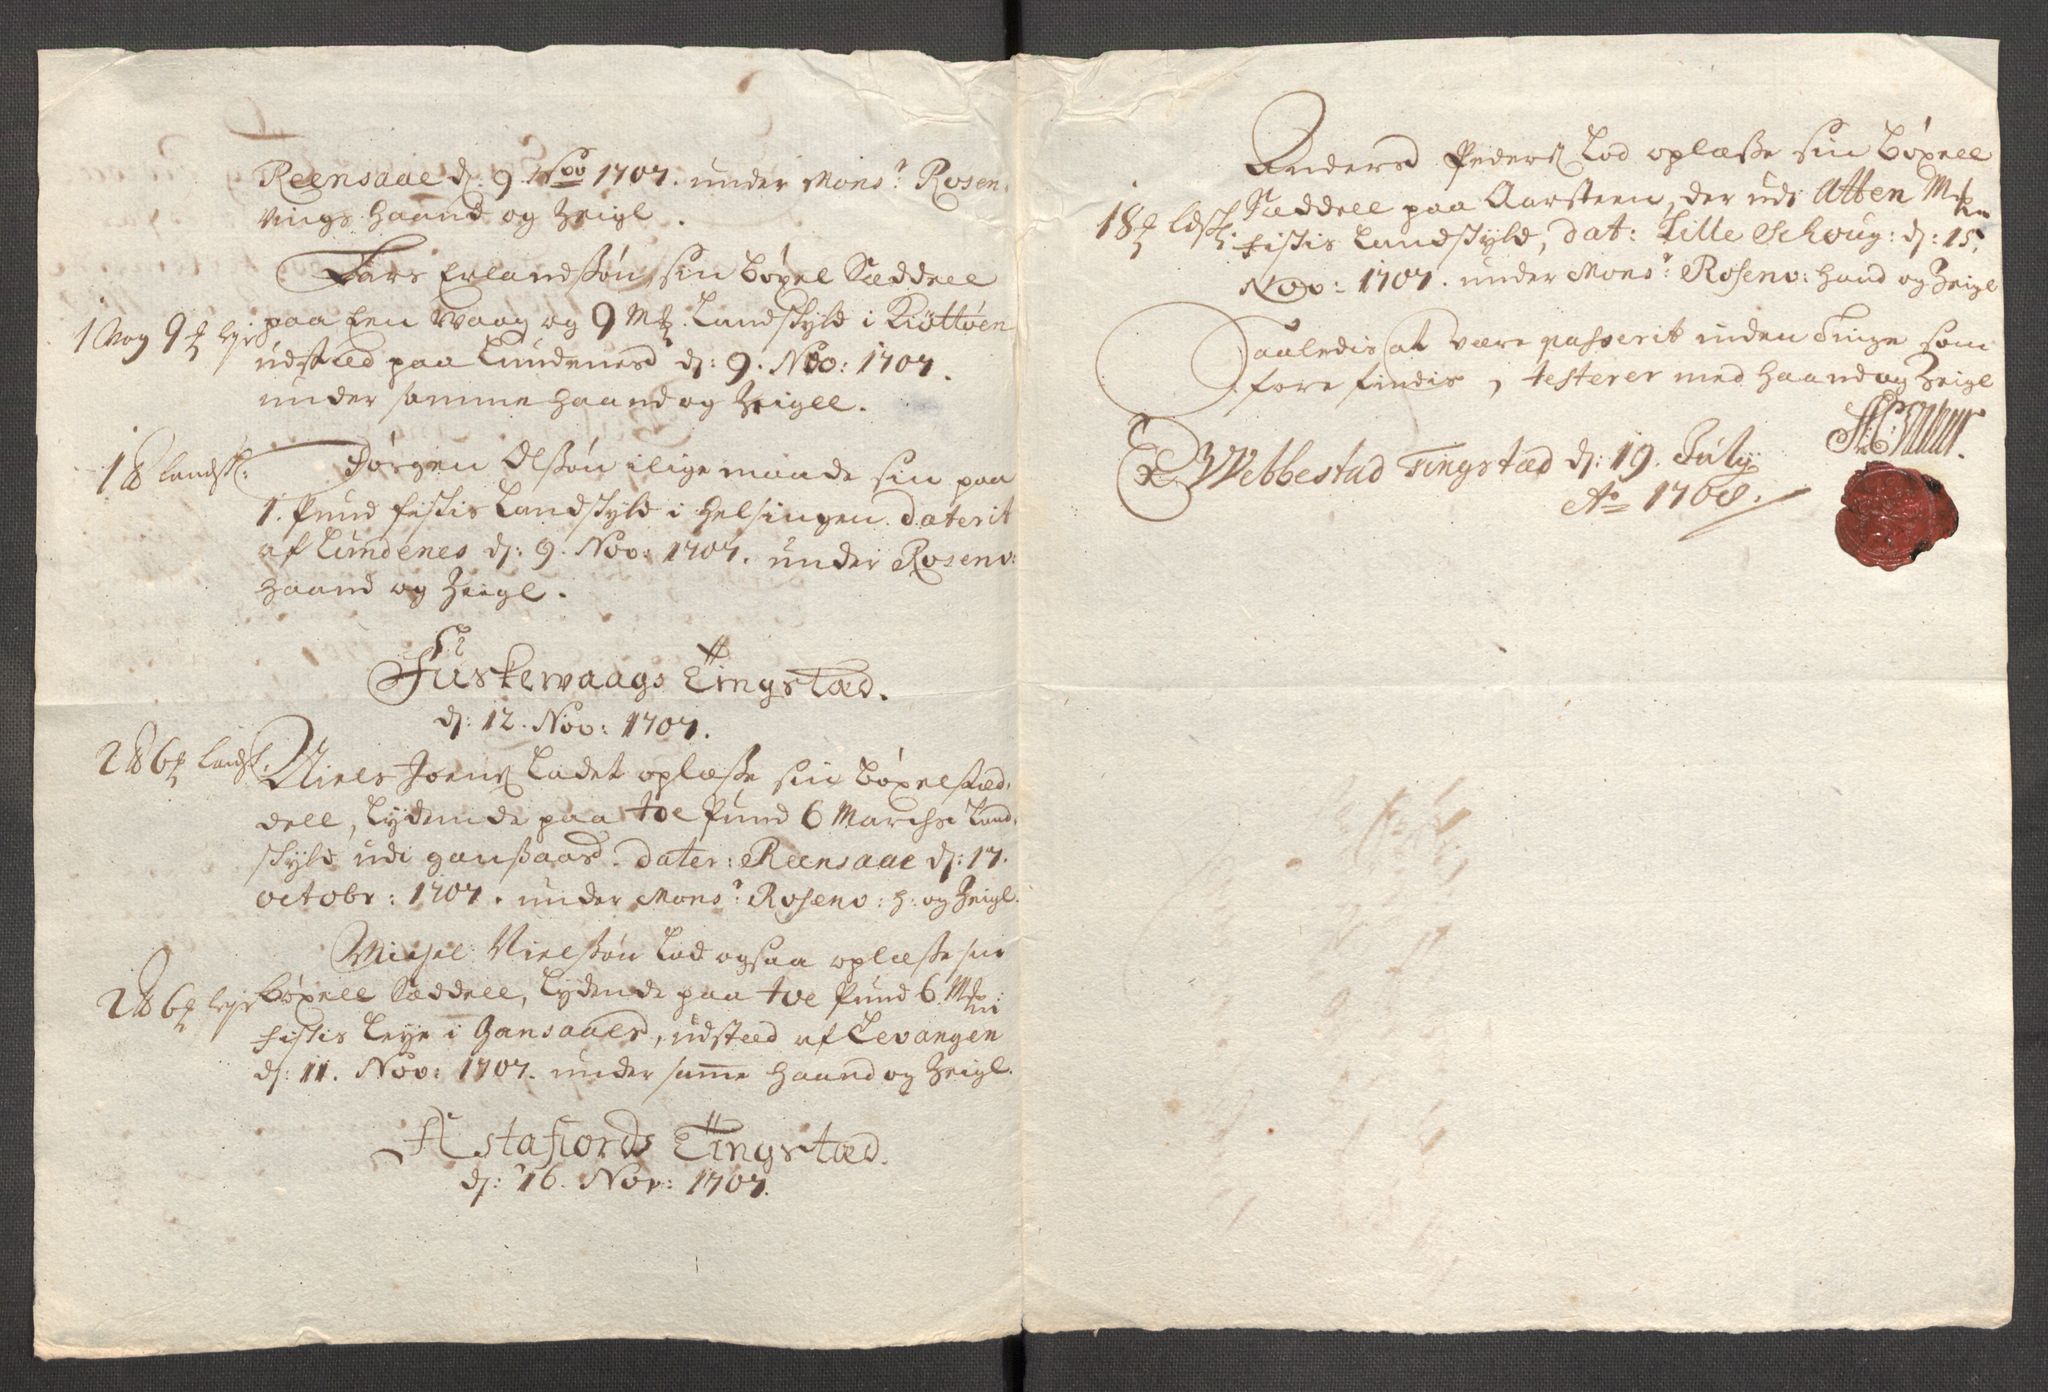 Reensaae d: 9 Nov 1707. under Mons:r Rosen-
vings haand og Zeigl.
Lars Erlandssøn, sin böxel Sæddell
1 Vog 9 paa Een Waag og 9 Mk. Landskyld i Kiöttöen
udstæd paa Lundenes d: 9. Nov: 1707.
under samme haand og Zeigel.
1 Landsk: Jörgen Olssön ilige maade sin paa
1. Pund fiskis Landskyld i Helsingen. daterit
af Lundenes d: 9. Nov: 1707. under Rosenv:
haand og Zeigl.
Fuskewaags Tingstæd.
d: 12. Nov: 1707.
2 6 Landsk: Niels Joens Ladet oplæsse sin böxelsæd-
dell, Lydende paa toe Pund 6 March Land-
skyld udi Gansaars. dater: Reensaae d: 17.
octobr: 1707. under Mons:r Rosenv: h: og Zeigl.
Michel Nielssön Lod ogsaa oplæsse sin
2 6 Leje böxell Sæddell, Lydende paa toe Pund 6 Mk
fiskis Leye i Gansaaes, udstæd af Levangen
d: 11. Nov: 1707. under samme haand og Zeigl.
Astafiords Tingstæd.
d: 16. Nov: 1707.
Anders Peders Lod oplæsse sin böxell
Sæddell paa Aarsteen, der udi Atten Mk
18 Ldsk: fiskis Landskyld, dat: Lille Schoug: d: 15.
Nov: 1707. under Mons:r Rosenv: hand og Zeigl
Saaledis at være passerit inden Tinge som
fore findis, testerer med haand og Zeigl
Webbestad Tingstæd d: 19. July
Ao 1708.